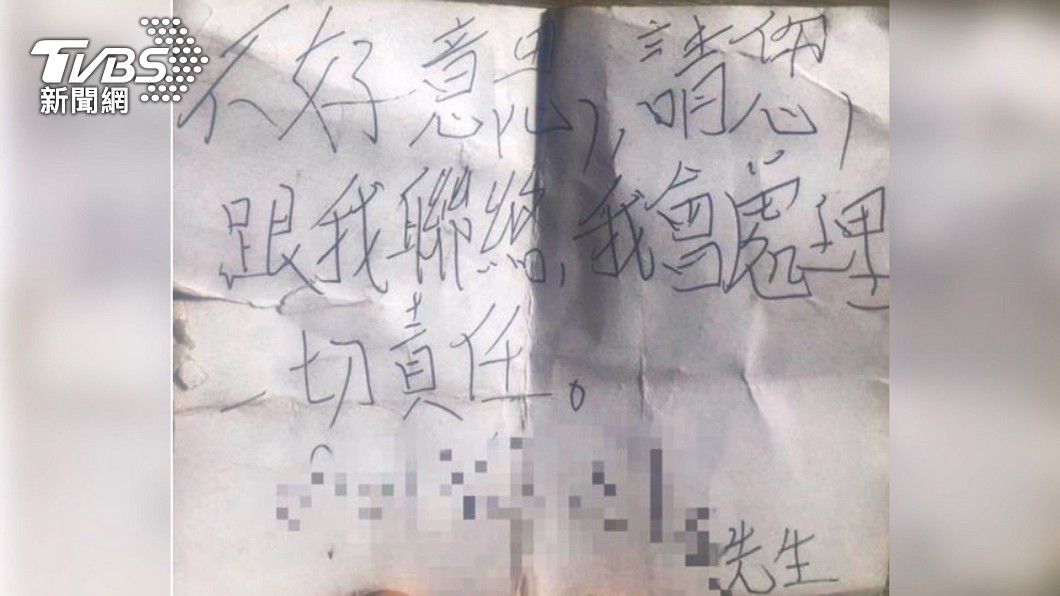 TVBS
新聞網
不好意思,請您,
跟我聯絡,我會處理
一切責任。
先生